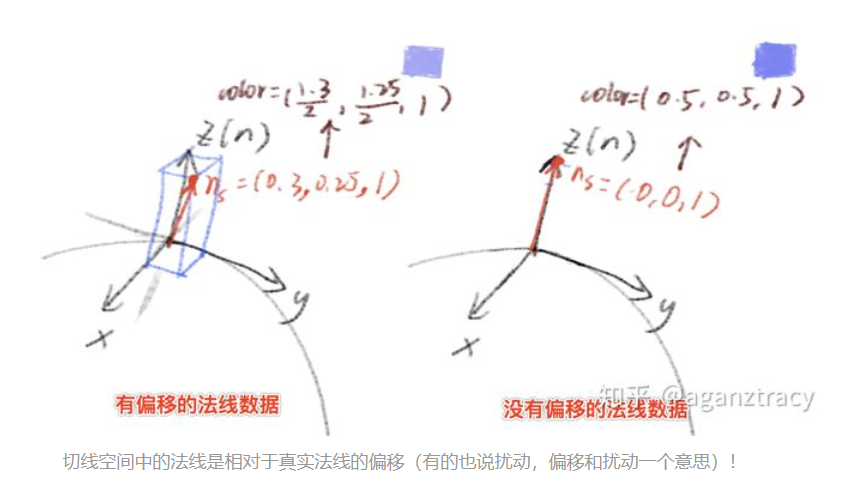 color=(1.3/2, 1.25/2, 1)
Z(n)
ns=(0.3,0.25,1)
x
y
有偏移的法线数据
color=(0.5,0.5,1)
Z(n)
ns=(0,0,1)
x
y
没有偏移的法线数据
知乎 @aganztracy
切线空间中的法线是相对于真实法线的偏移（有的也说扰动，偏移和扰动一个意思）！